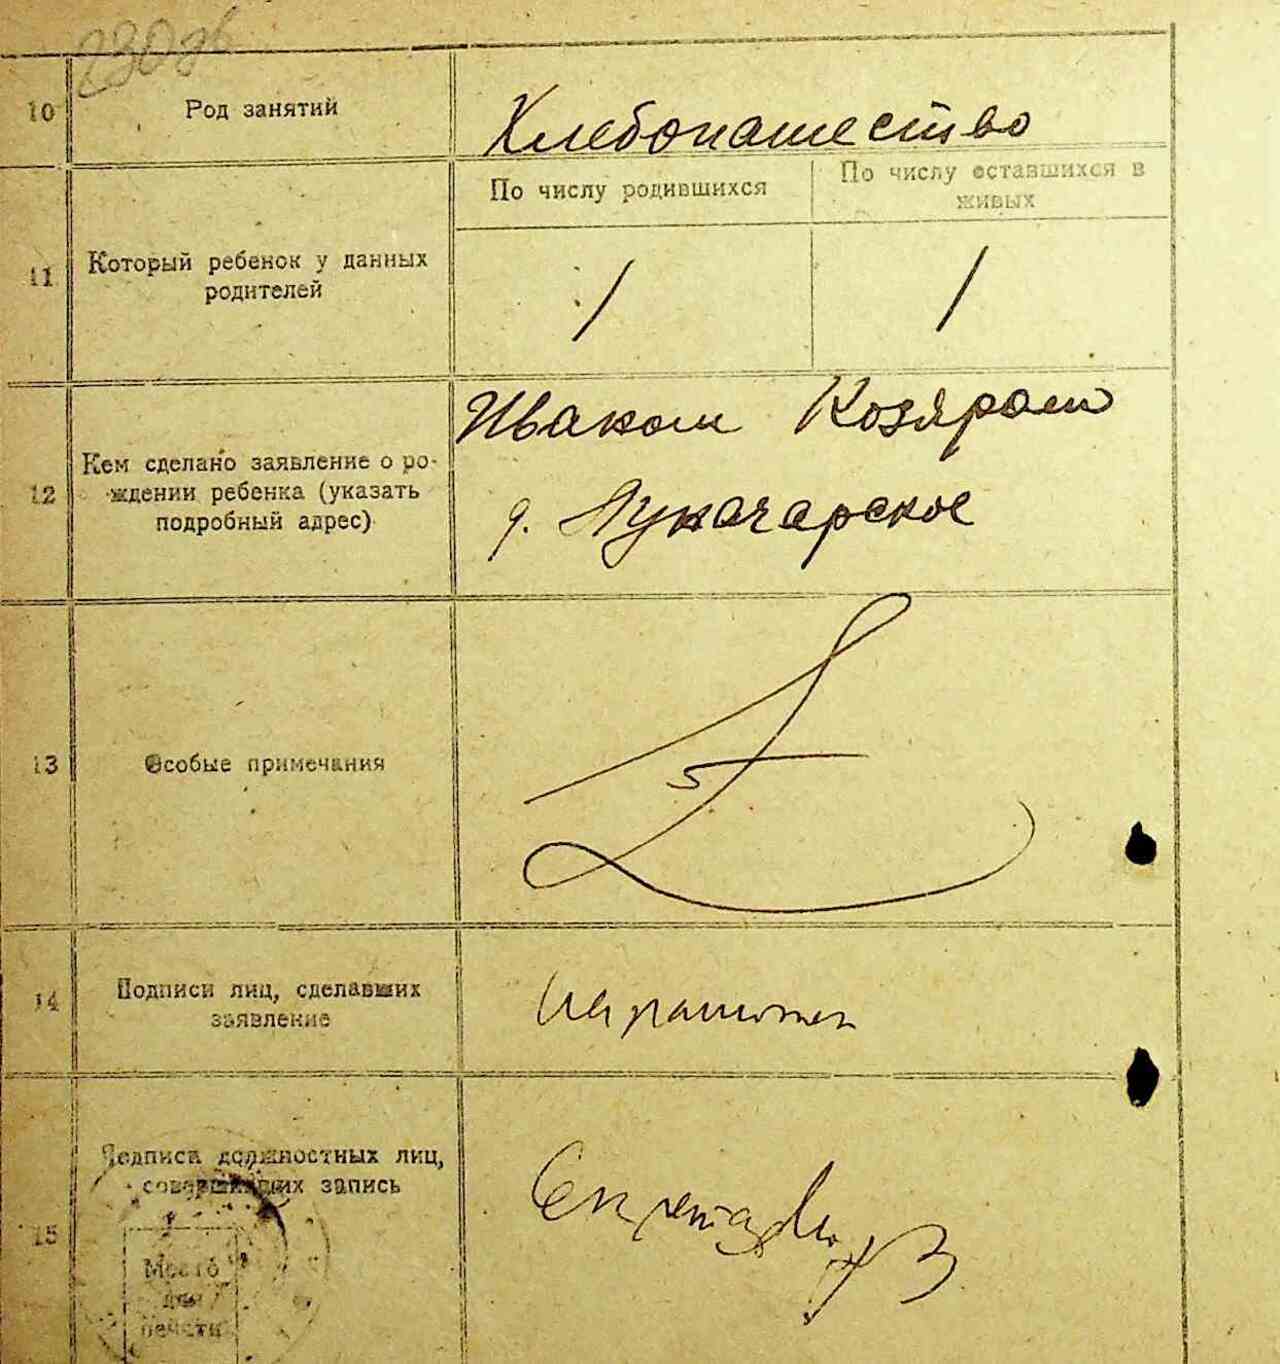 10
Род занятий
Хлебопашество
11
Который ребенок у данных
родителей
По числу родившихся
По числу оставшихся в
живых
1
1
12
Кем сделано заявление о ро-
ждении ребенка (указать
подробный адрес)
Иваком Козяром
д. Луначарское
13
Особые примечания
14
Подписи лиц, сделавших
заявление
15
Подписи должностных лиц,
совершивших запись
Секретарь
Место
для
печати